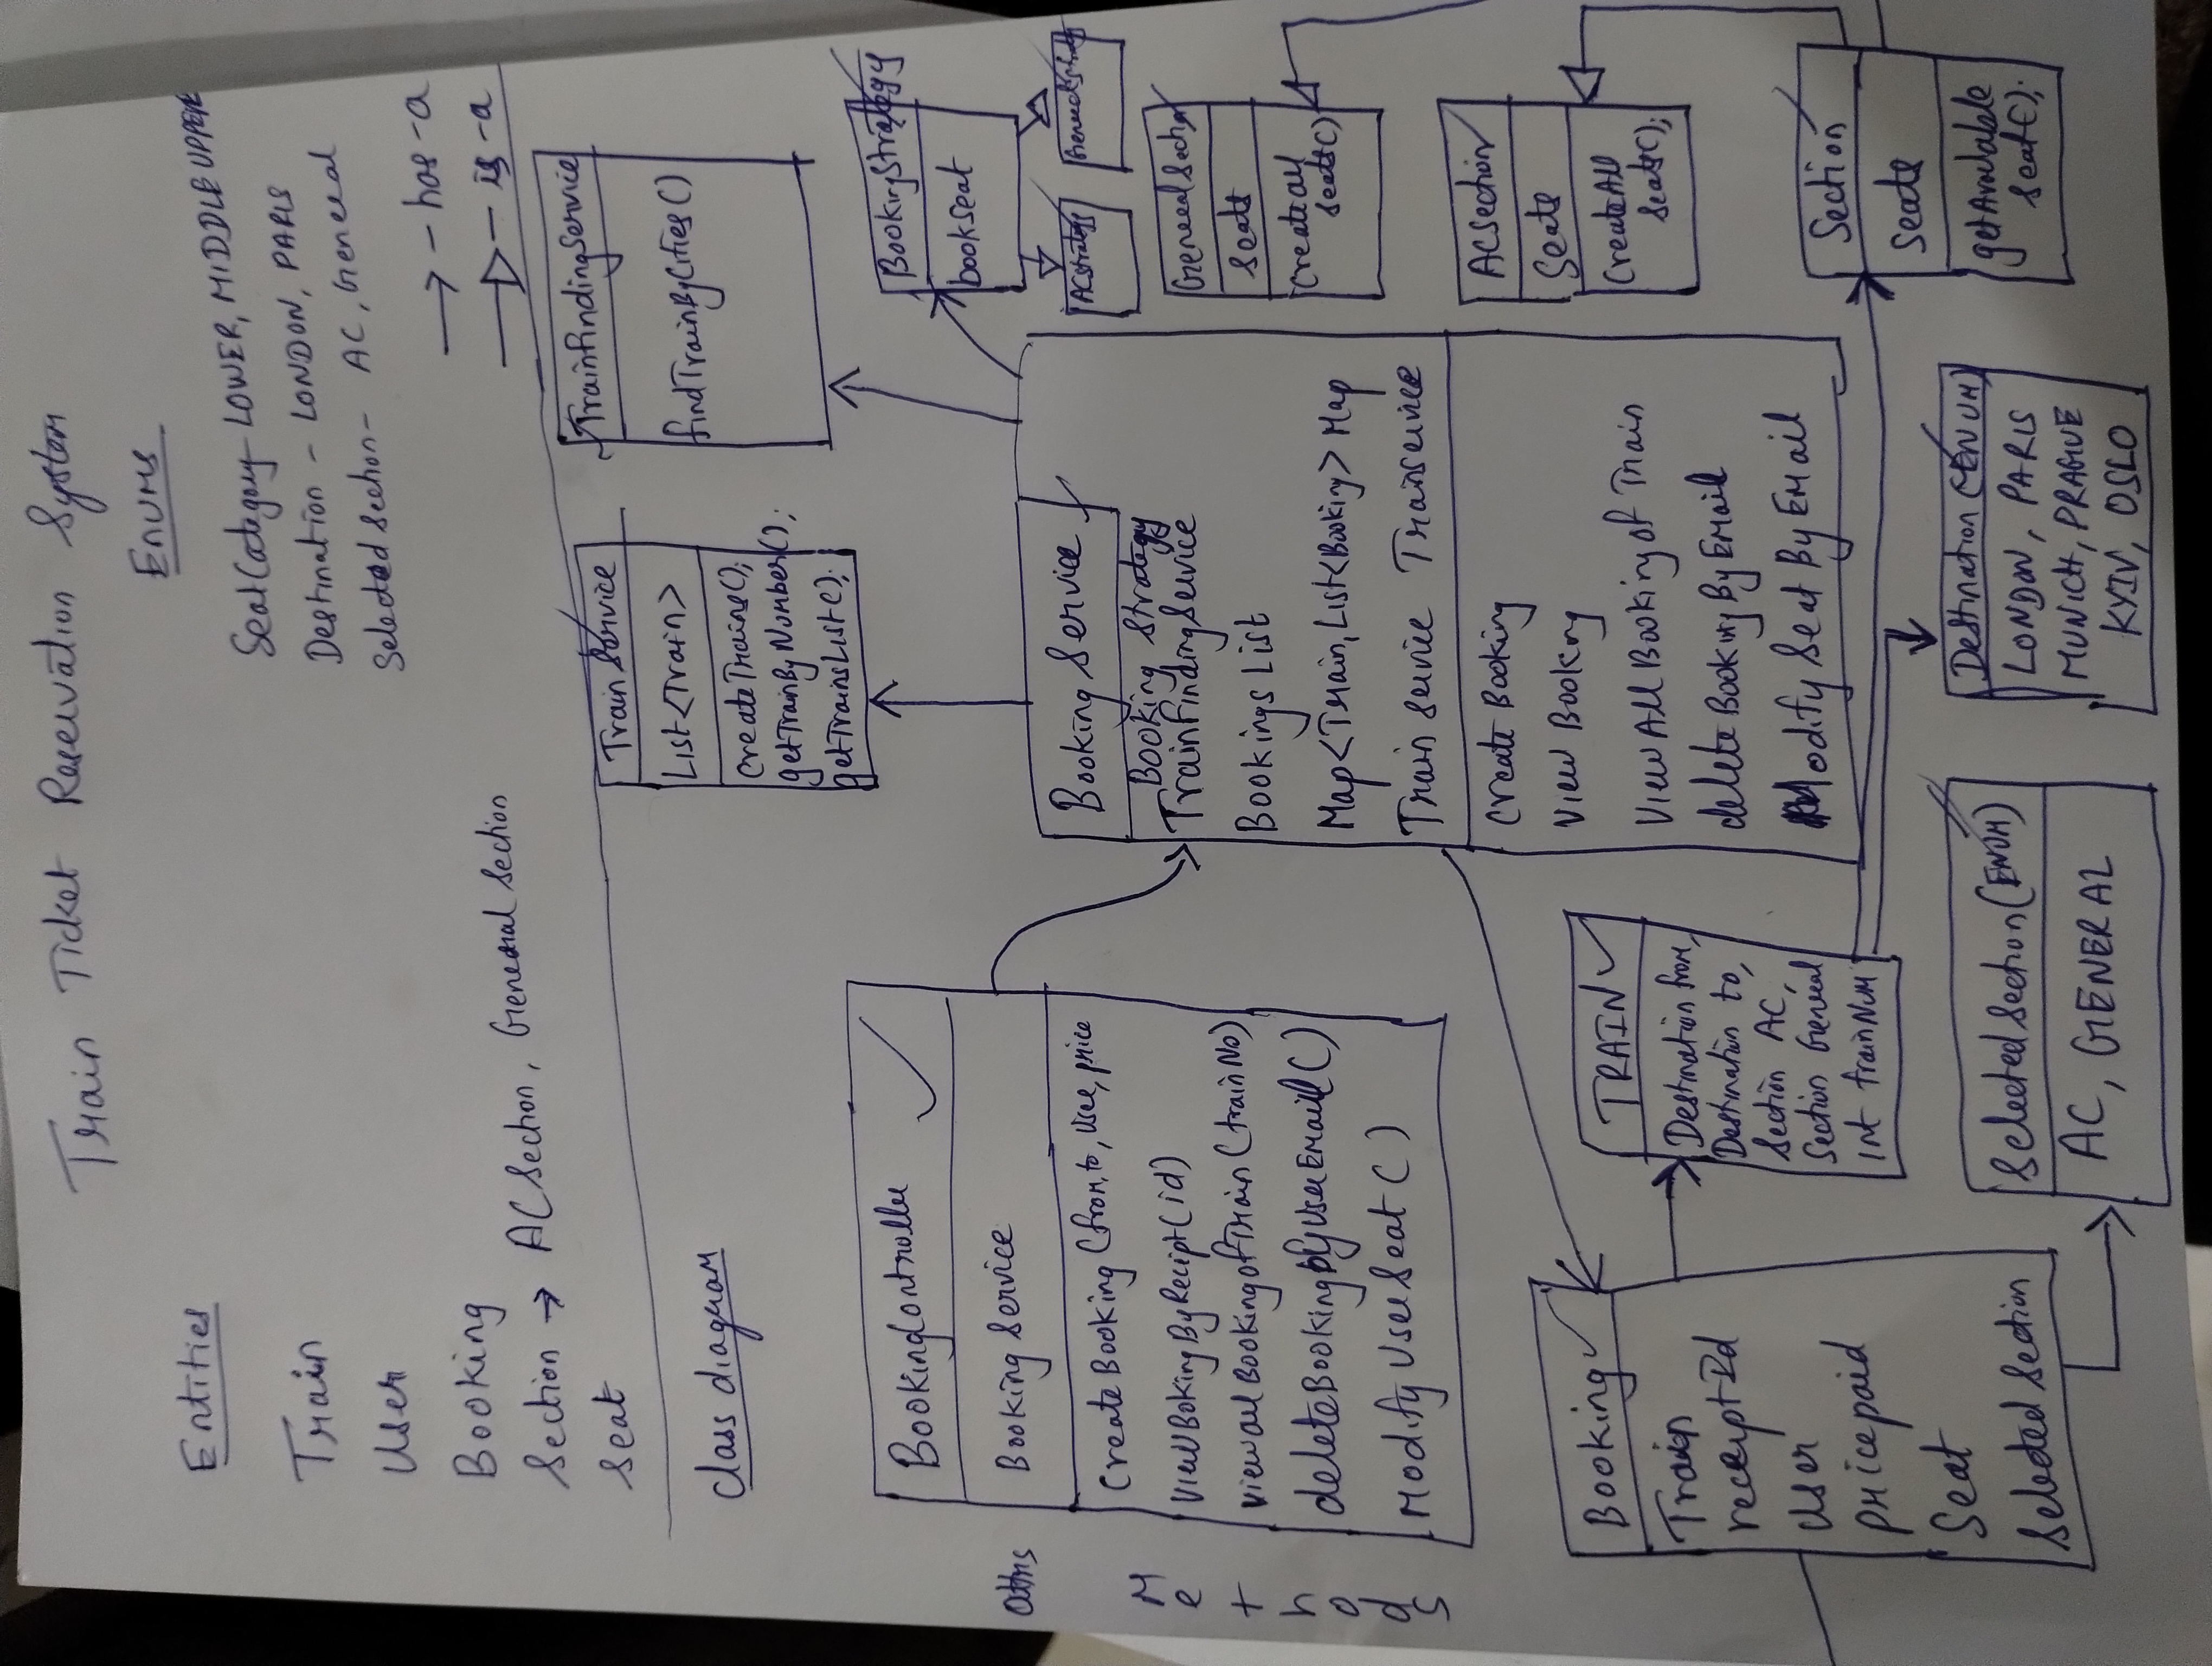 Train Ticket Reservation System
Entities
Train
User
Booking
Section → AC Section, General Section
Seat
Enums
SeatCategory - LOWER, MIDDLE UPPER
Destination - LONDON, PARIS
Selected Section - AC, General
→ - has-a
- is-a
Class diagram
Train Service
List<Train>
createTrains();
getTrainByNumber();
getTrainsList();
TrainFindingService
findTrainByCities()
BookingController
attris
Booking Service
Methods
Create Booking (from, to, User, price
ViewBokingByRecipt(id)
view all BookingofTrain (trainNo)
deleteBookingbyUserEmail()
Modify User Seat ()
BookingStrategy
bookSeat
ACstrategy
Booking Service
Booking Strategy
TrainFindingService
Bookings List
Map<Train, List<Booking> Map
Train Service Trainservice
Create Booking
View Booking
View All Booking of Train
delete Booking By Email
Modify Seat By Email
General Section
Seats
Create all
seats()
ACSection
Seats
CreateAll
Seats();
Booking
Train
receiptId
User
pricepaid
Seat
Selected Section
TRAIN
Destination from,
Destination to,
Section AC,
Section General
Int trainNum
Section
Seats
getAvailable
Seat();
Selected Section (ENUM)
AC, GENERAL
Destination (ENUM)
LONDON, PARIS
MUNICH, PRAGUE
KYIV, OSLO